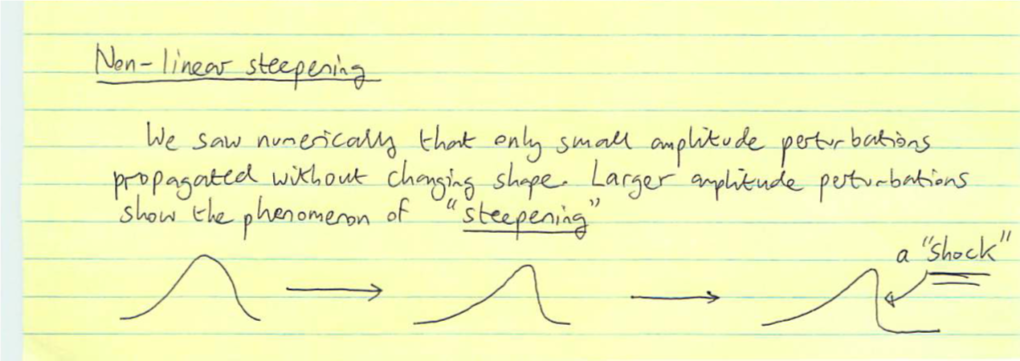 Non-linear steepening
We saw numerically that only small amplitude perturbations
propagated without changing shape. Larger amplitude perturbations
show the phenomenon of "steepening"
a "shock"